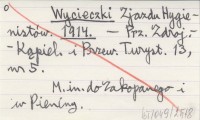 o
Wycieczki Zjazdu Hygie-
nistów. 1914. — Prz. Zdroj.-
- Kąpiel. i Przew. Turyst. 13,
nr 5.
M. in. do Zakopanego i
w Pieniny.